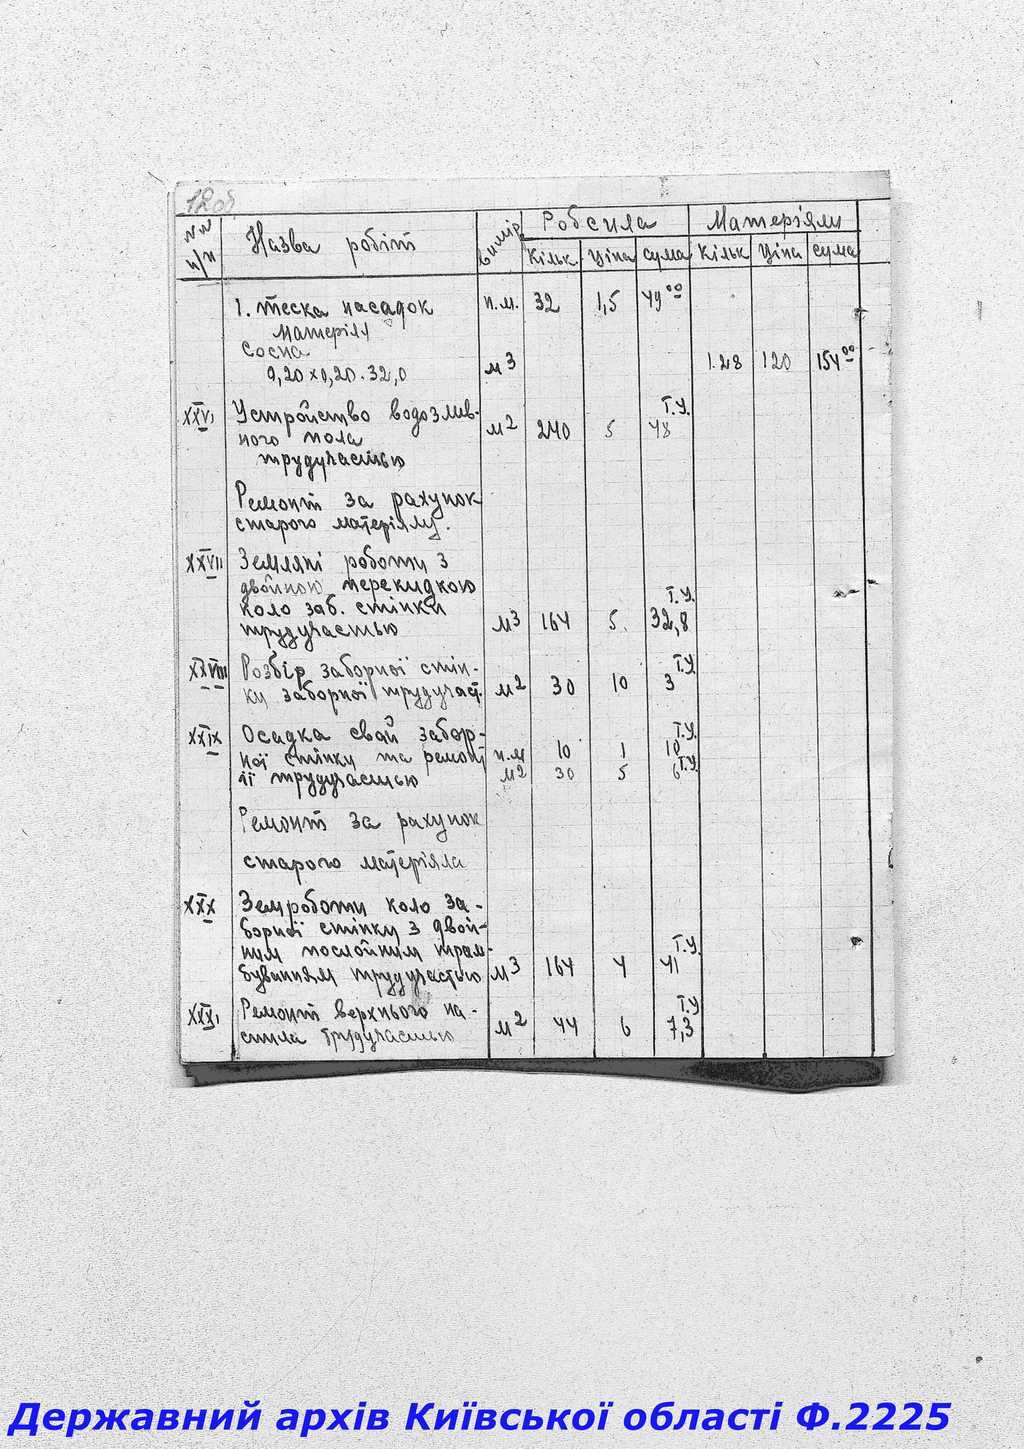 12об
№№ п/п Назва робіт вимір Робсила Матеріяли
Кільк Ціна сума Кільк Ціна сума
1. теска насадок п.м. 32 1,5 49 00
матеріял
сосна
0,20 x 0,20 . 32,0 м3 1.28 120 154 00
XXVI Устройство водозлив- Т.У.
ного пола м2 240 5 48
трудучастью
Ремонт за рахунок
старого матеріялу.
XXVII Земляні роботи з
двойною перекидкою
коло заб. стінки Т.У.
трудучастью м3 164 5. 32,8
XXVIII Розбір заборної стін- Т.У.
ки заборної трудучаст. м2 30 10 3
XXIX Осадка свай забор- Т.У.
ної стінки та ремонт п.м 10 1 10
її трудучастью м2 30 5 6 Т.У.
Ремонт за рахунок
старого матеріяла
XXX Земроботи коло за-
борної стінки з двой-
ним послойним трам- Т.У.
буванням трудучастью м3 164 4 41
XXXI Ремонт верхнього на- Т.У
стила трудучастью м2 44 6 7,3
Державний архів Київської області Ф.2225